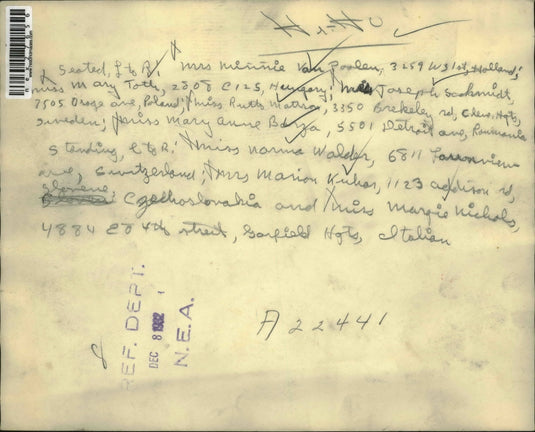 Seated, L to R: Mrs Minnie Van Poolen, 3259 W 51 st, Holland;
Miss Mary Toth, 2808 E 125, Hungary; Mrs Joseph
7505 ave, Poland; Miss Ruth 3350 Berkeley rd, Cleve, Hgts,
Sweden; Miss Mary Anne Barza, 5501 Detroit ave, Roumania
Standing, L to R: Miss Norma Walder, 6811
ave, Switzerland; Mrs Marion Kuhar, 1123 Addison rd,
Slovene; Czechoslovakia and Miss Margie Nichols,
4884 E 84th street, Garfield Hgts, Italian
A 22441
REF. DEPT.
DEC 8 1932
N.E.A.